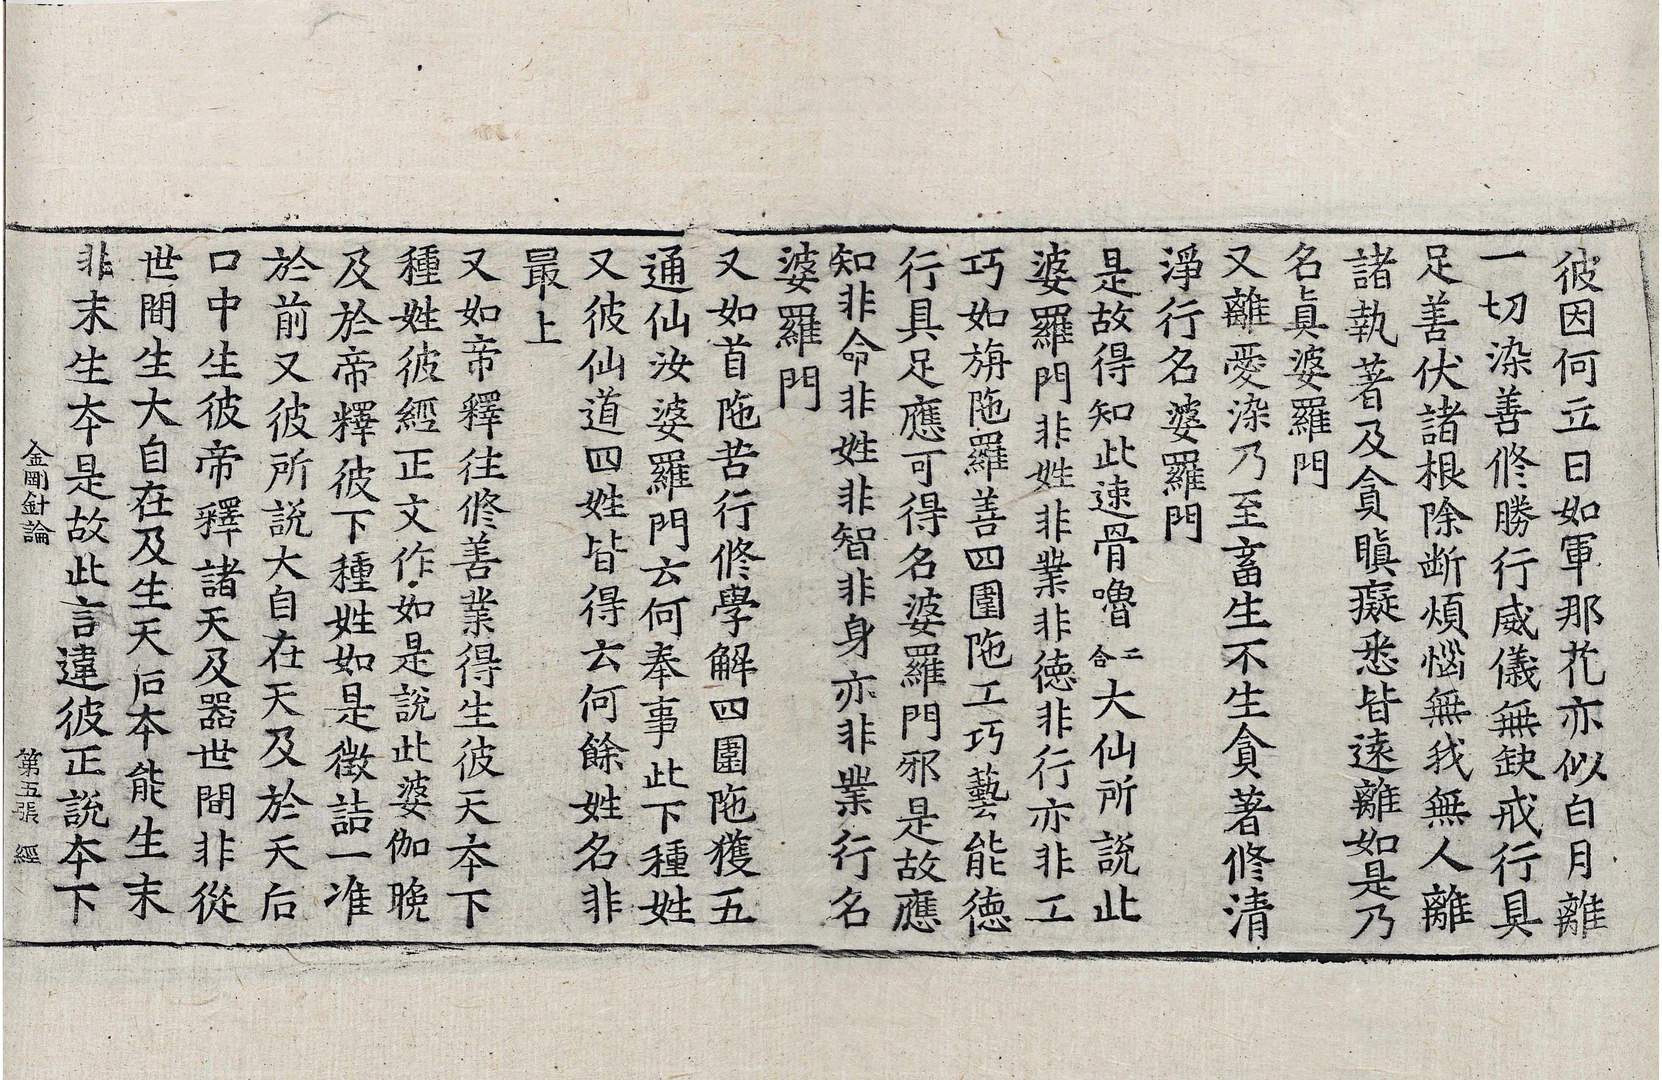 彼因何立曰如軍那花亦似白月離
一切染善修勝行威儀無缺戒行具
足善伏諸根除断煩惱無我無人離
諸執著及貪瞋癡悉皆遠離如是乃
名眞婆羅門
又離愛染乃至畜生不生貪著修清
淨行名婆羅門
是故得知此速骨嚕二合大仙所說此
婆羅門非姓非業非德非行亦非工
巧如旃陁羅善四圍陁工巧藝能德
行具足應可得名婆羅門邪是故應
知非命非姓非智非身亦非業行名
婆羅門
又如首陁苦行修學解四圍陁獲五
通仙汝婆羅門云何奉事此下種姓
又彼仙道四姓皆得云何餘姓名非
最上
又如帝釋往修善業得生彼天夲下
種姓彼經正文作如是說此婆伽晚
及於帝釋彼下種姓如是徵詰一准
於前又彼所說大自在天及於天后
口中生彼帝釋諸天及器世間非從
世間生大自在及生天后本能生末
非末生夲是故此言違彼正說夲下
金剛針論　第五張　經